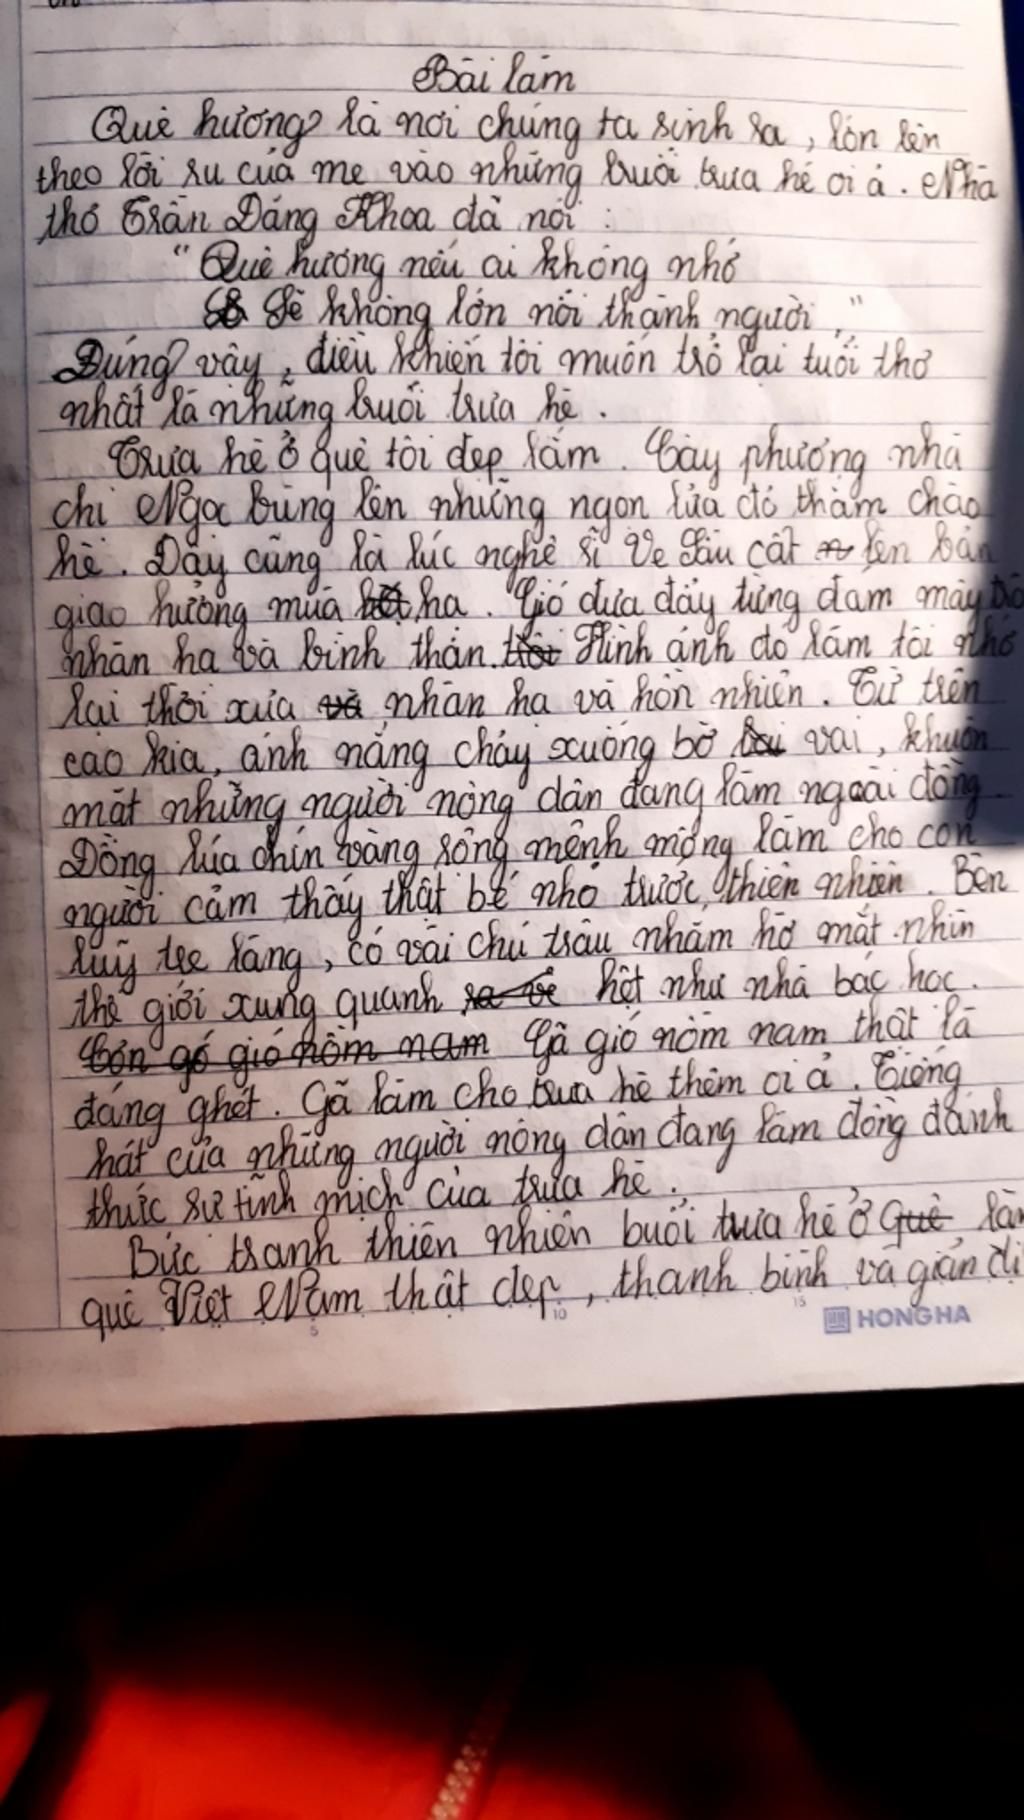 Bài làm
Quê hương là nơi chúng ta sinh ra, lớn lên
theo lời ru của mẹ vào những buổi trưa hè oi ả. Nhà
thơ Trần Đăng Khoa đã nói :
"Quê hương nếu ai không nhớ
Sẽ không lớn nổi thành người."
Đúng vậy, điều khiến tôi muốn trở lại tuổi thơ
nhất là những buổi trưa hè.
Trưa hè ở quê tôi đẹp lắm. Cây phượng nhà
chị Ngọc bùng lên những ngọn lửa đỏ thắm chào
hè. Đây cũng là lúc nghệ sĩ Ve Sầu cất lên bản
giao hưởng mùa hạ. Gió đưa đẩy từng đám mây trôi
nhàn hạ và bình thản. Hình ảnh đó làm tôi nhớ
lại thời xưa nhàn hạ và hồn nhiên. Từ trên
cao kia, ánh nắng chảy xuống bờ vai, khuôn
mặt những người nông dân đang làm ngoài đồng.
Đồng lúa chín vàng rộng mênh mông làm cho con
người cảm thấy thật bé nhỏ trước thiên nhiên. Bên
luỹ tre làng, có vài chú trâu nhăm hờ mắt nhìn
thế giới xung quanh hệt như nhà bác học.
Gã gió nồm nam thật là
đáng ghét. Gã làm cho trưa hè thêm oi ả. Tiếng
hát của những người nông dân đang làm đồng đánh
thức sự tĩnh mịch của trưa hè.
Bức tranh thiên nhiên buổi trưa hè ở làng
quê Việt Nam thật đẹp, thanh bình và giản dị
5 10 15
HONG HA